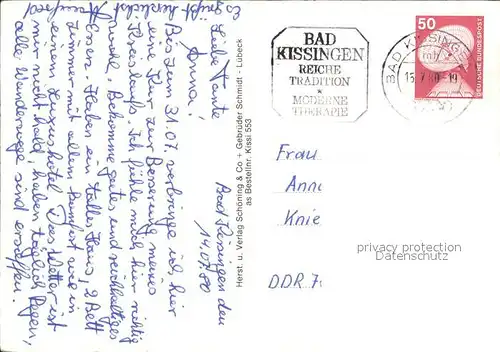 Bad Kissingen den
14.07.80
Liebe Tante
Anna!
Bis zum 31.07. verbringe ich hier
eine Kur zur Besserung meines
Kreislaufs. Ich fühle mich hier richtig
wohl. Bekomme gutes und reichhaltiges
Essen. Haben ein tolles Haus, 2 Bett
Zimmer mit allem Komfort wie in
einem Luxushotel. Das Wetter ist
mir nicht hold, haben täglich Regen,
alle Wanderwege sind ersoffen.
Es grüßt herzlichst
Herst. u. Verlag Schöning & Co + Gebrüder Schmidt - Lübeck
as Bestellnr. Kissi 553
BAD
KISSINGEN
REICHE
TRADITION
*
MODERNE
THERAPIE
BAD KISSINGEN
15.7.80-19
50
DEUTSCHE BUNDESPOST
Frau
Anna
Knie
DDR 7
privacy protection
Datenschutz